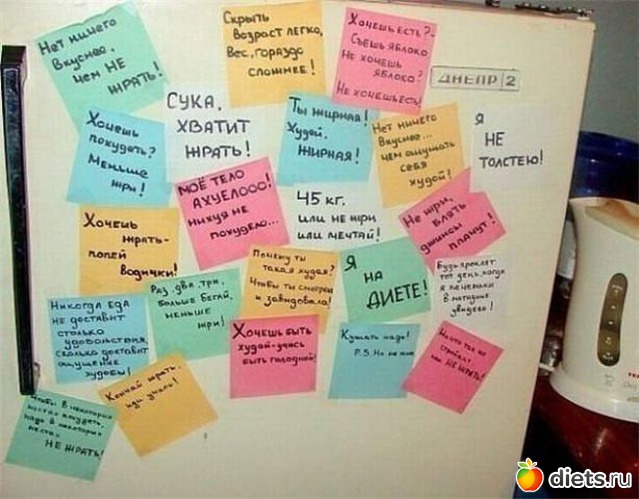 Нет ничего
вкуснее,
чем НЕ
ЖРАТЬ!
Скрыть
возраст легко,
вес, гораздо
сложнее!
Хочешь есть?-
Съешь яблоко
Не хочешь
яблоко?
Не хочешь есть!
ДНЕПР 2
Хочешь
похудеть?
Меньше
жри!
СУКА,
ХВАТИТ
ЖРАТЬ!
Ты жирная!
Худей,
ЖИРНАЯ!
Нет ничего
вкуснее...
чем ощущать
себя
худой!
Я
НЕ
ТОЛСТЕЮ!
МОЁ ТЕЛО
АХУЕЛООО!
нихуя не
похудело...
45 кг.
или не жри
или мечтай!
Не жри,
блять
джинсы
плачут!
Хочешь
жрать-
попей
водички!
Раз, два, три,
больше бегай,
меньше
жри!
Почему ты
такая худая?
Чтобы ты смотрела
и завидовала!
Я
НА
ДИЕТЕ!
Будь проклят
тот день, когда
я пельмени
в магазине
увидела!
Никогда ЕДА
не доставит
столько
удовольствия,
сколько доставит
ощущение
худобы!
Хочешь быть
худой-учись
быть голодной!
Кушать надо!
P.S. Но не
Ничто так не
стройнит
как НЕ ЖРАТЬ!
Кончай жрать,
иди учись!
Чтобы в некоторых
местах похудеть,
надо в некоторых
местах
НЕ ЖРАТЬ!
diets.ru